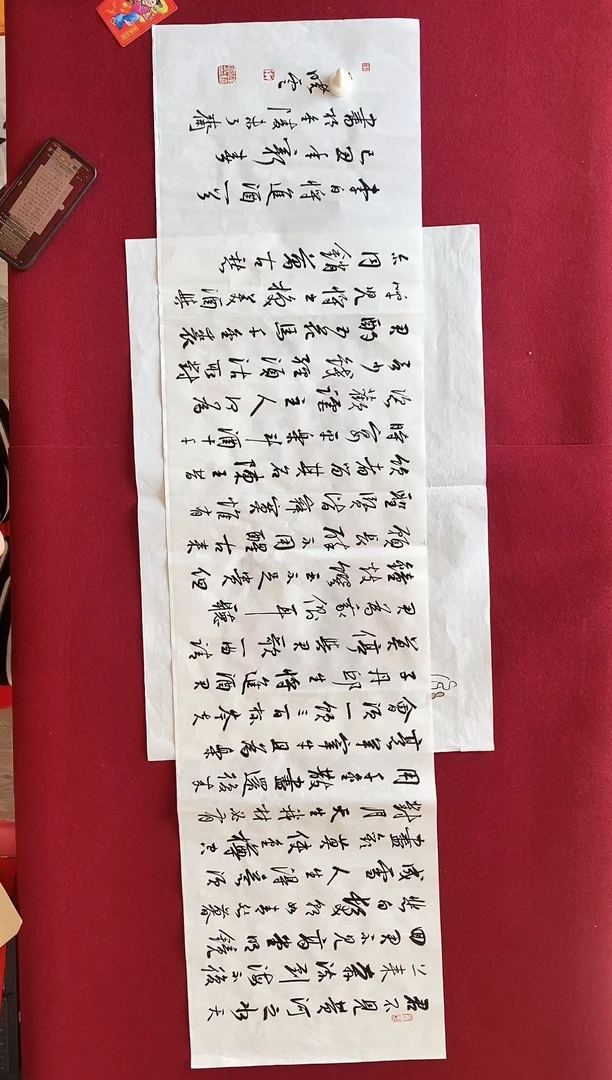 君不見黄河之水天
上来奔流到海不復
回君不見高堂明鏡
悲白髮朝如青丝暮
成雪人生得意須
盡歡莫使金樽空
對月天生我材必有
用千金散盡還復来
烹羊宰牛且為樂
會須一飲三百杯岑夫
子丹邱生將進酒君
莫停與君歌一曲請
君為我傾耳聽
鐘鼓饌玉不足贵但
願長醉不用醒古来
聖賢皆寂寞惟有
飲者留其名陳王昔
時宴平樂斗酒十千
恣歡謔主人何為
言少錢徑須沽取對
君酌五花馬千金裘
呼兒將出換美酒與
尔同銷萬古愁
李白將進酒一首
己丑年新春
書於金陵齋
曉雲